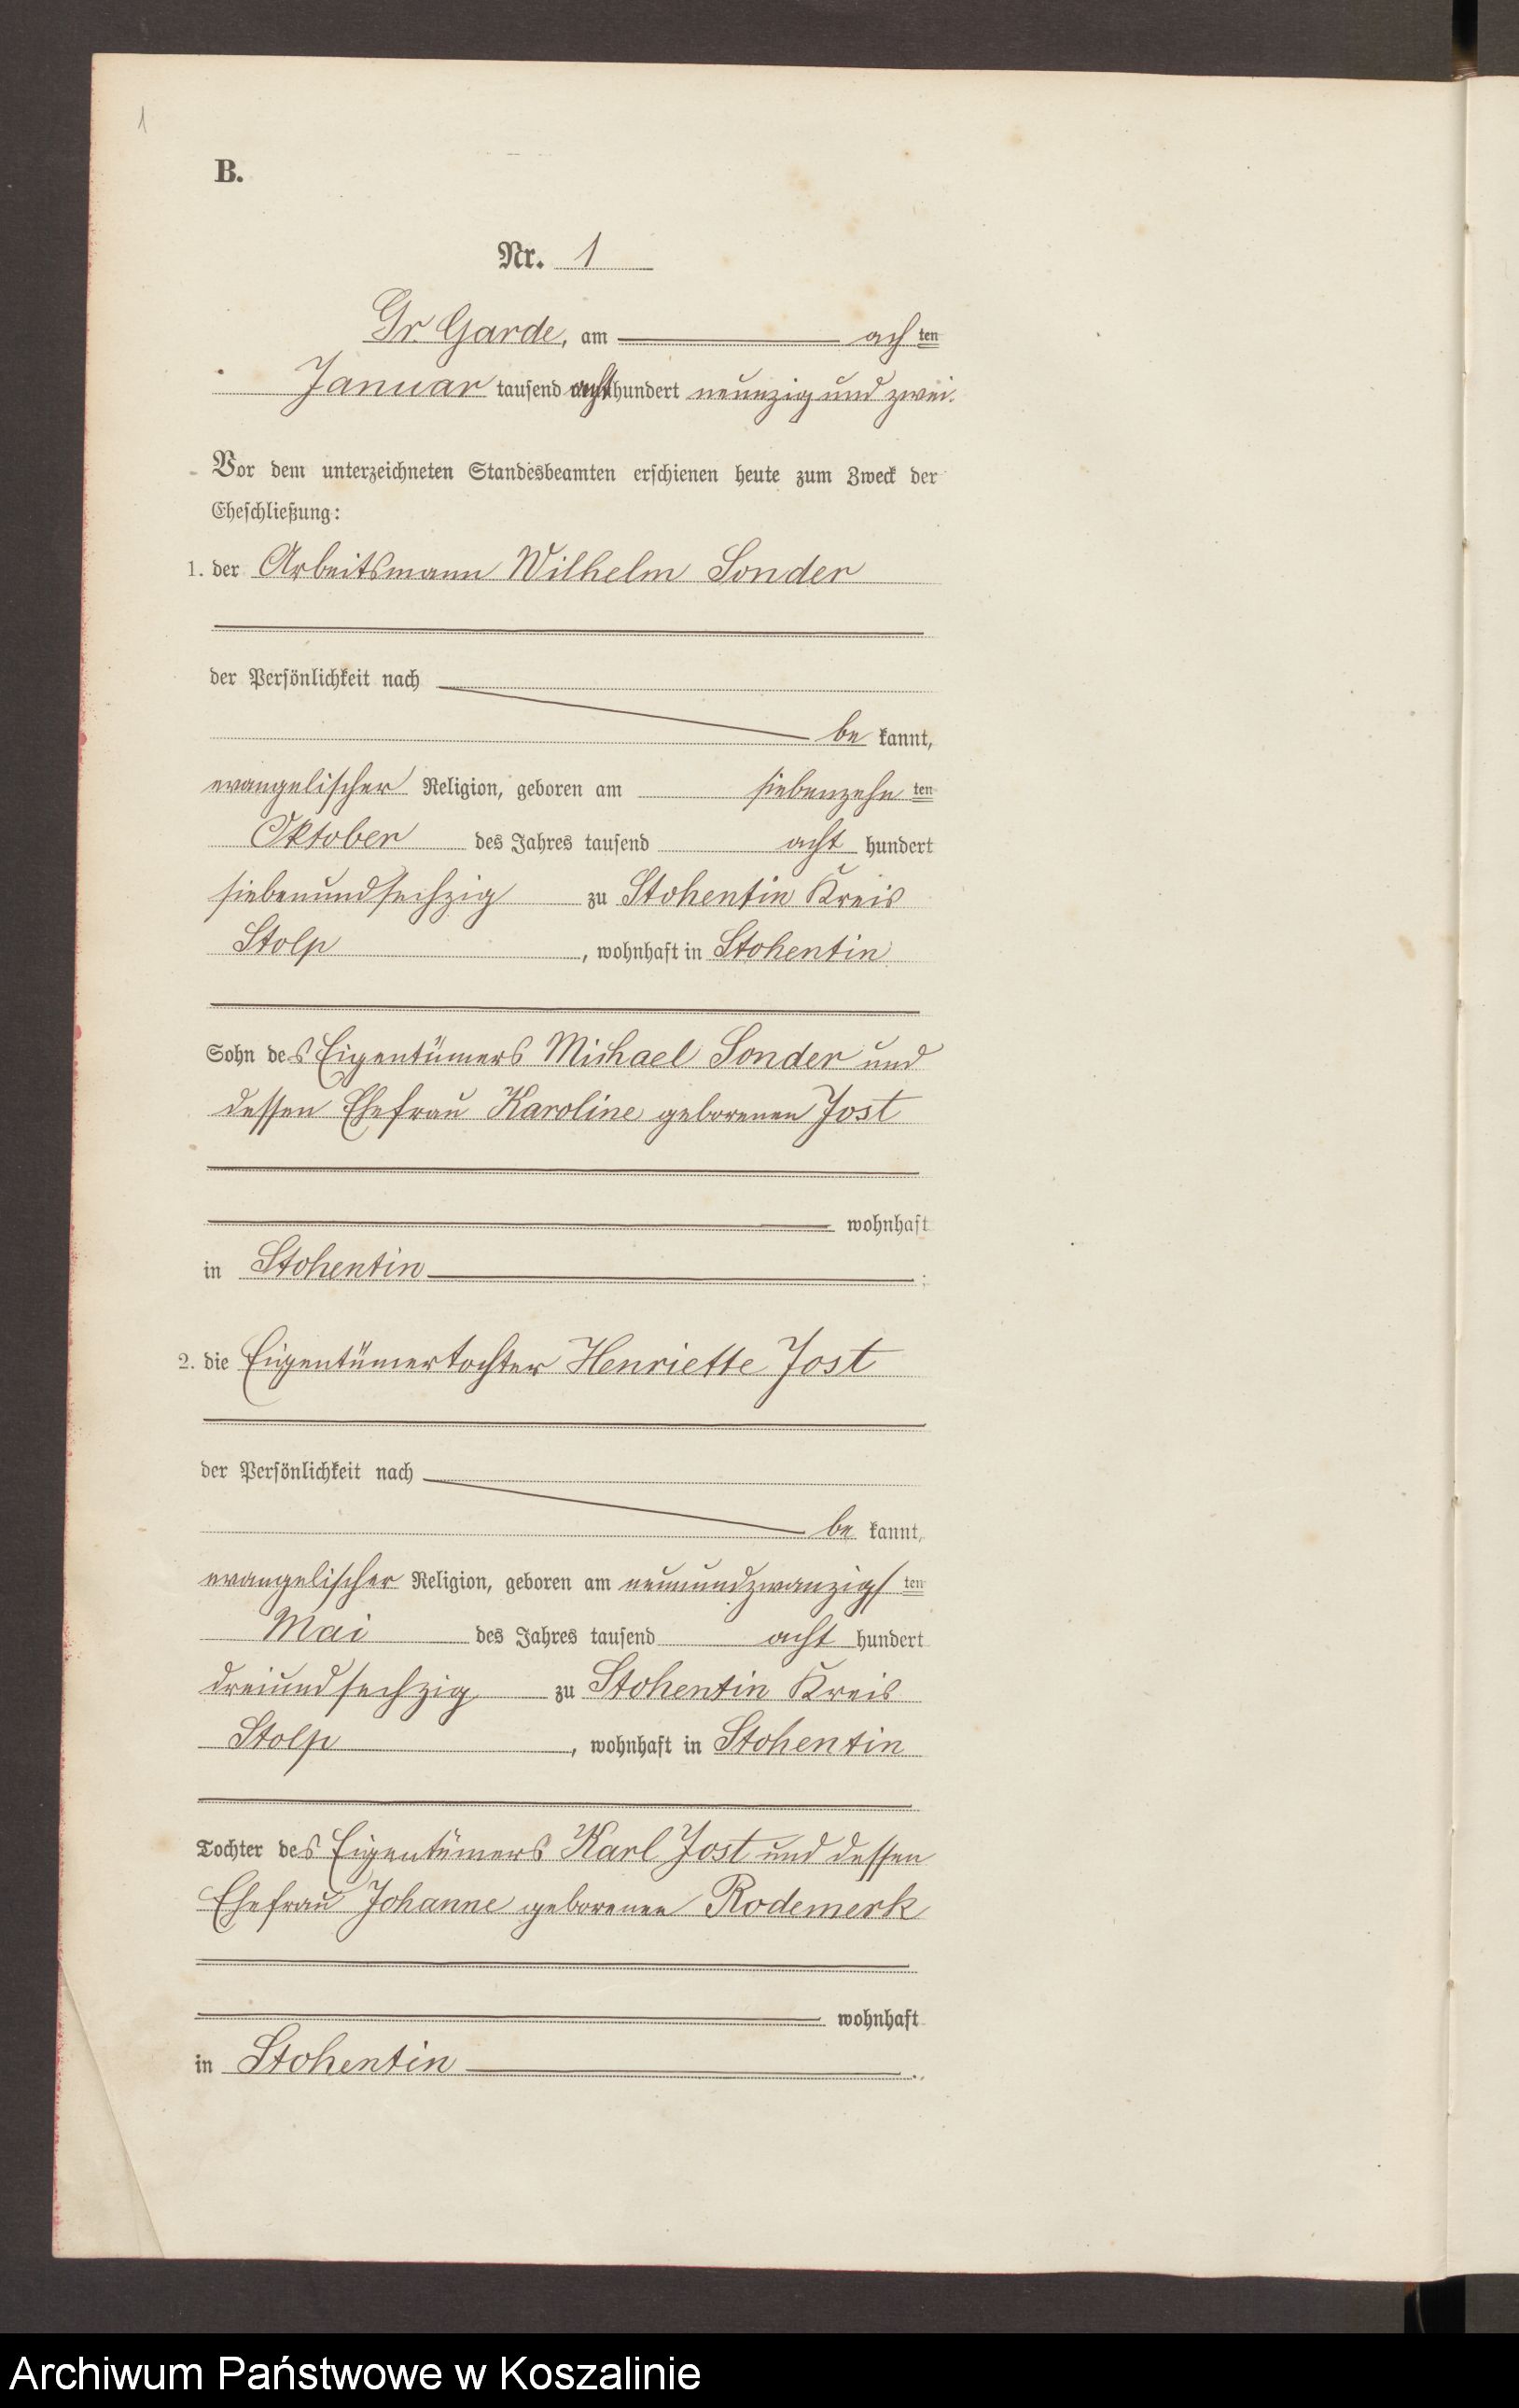 1
B.
Nr. 1
Gr. Garde, am achten
Januar tausend achthundert neunzig und zwei.
Vor dem unterzeichneten Standesbeamten erschienen heute zum Zweck der
Eheschließung:
1. der Arbeitsmann Wilhelm Sonder
der Persönlichkeit nach
be kannt,
evangelischer Religion, geboren am siebenzehn ten
Oktober des Jahres tausend acht hundert
siebenundsechzig zu Stohentin Kreis
Stolp, wohnhaft in Stohentin
Sohn des Eigentümers Michael Sonder und
dessen Ehefrau Karoline geborenen Jost
wohnhaft
in Stohentin
2. die Eigentümertochter Henriette Jost
der Persönlichkeit nach
be kannt,
evangelischer Religion, geboren am neunundzwanzigs ten
Mai des Jahres tausend acht hundert
dreiundsechzig zu Stohentin Kreis
Stolp, wohnhaft in Stohentin
Tochter des Eigentümers Karl Jost und dessen
Ehefrau Johanne geborenen Rodemerk
wohnhaft
in Stohentin.
Archiwum Państwowe w Koszalinie